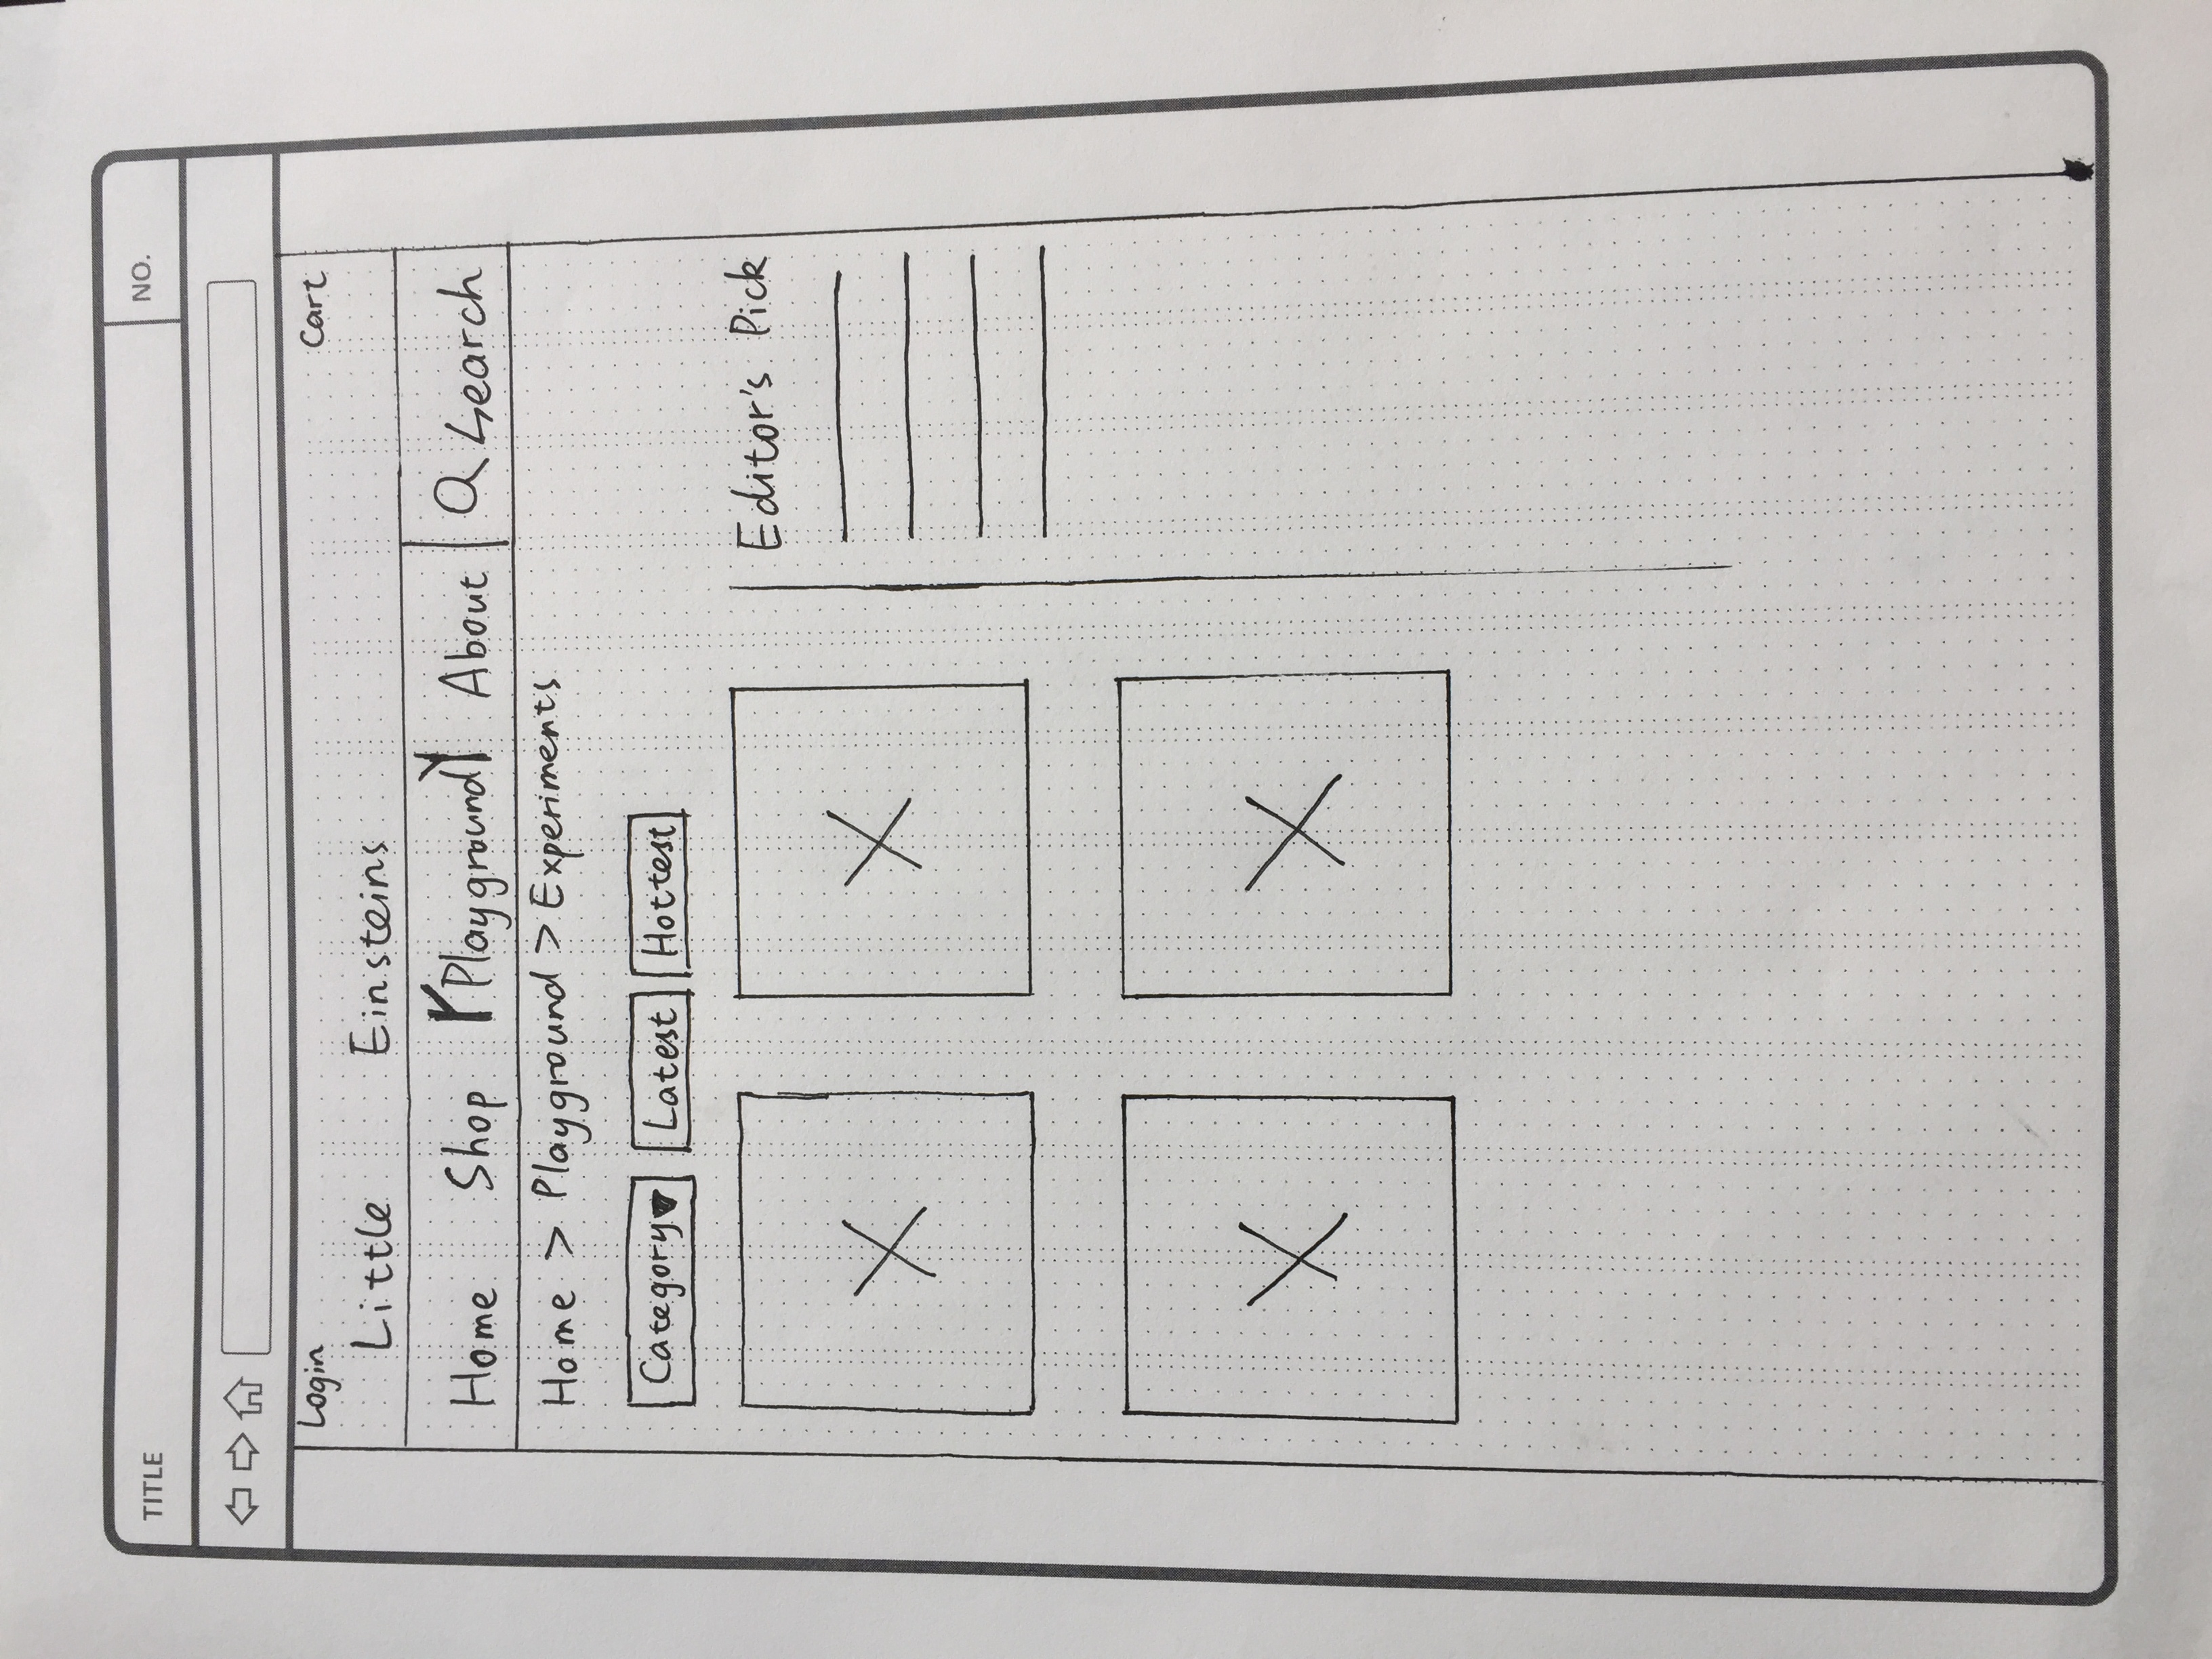 TITLE NO.
Login Cart
Little Einsteins
Home Shop Playground About Search
Home > Playground > Experiments
Category Latest Hottest
Editor's Pick